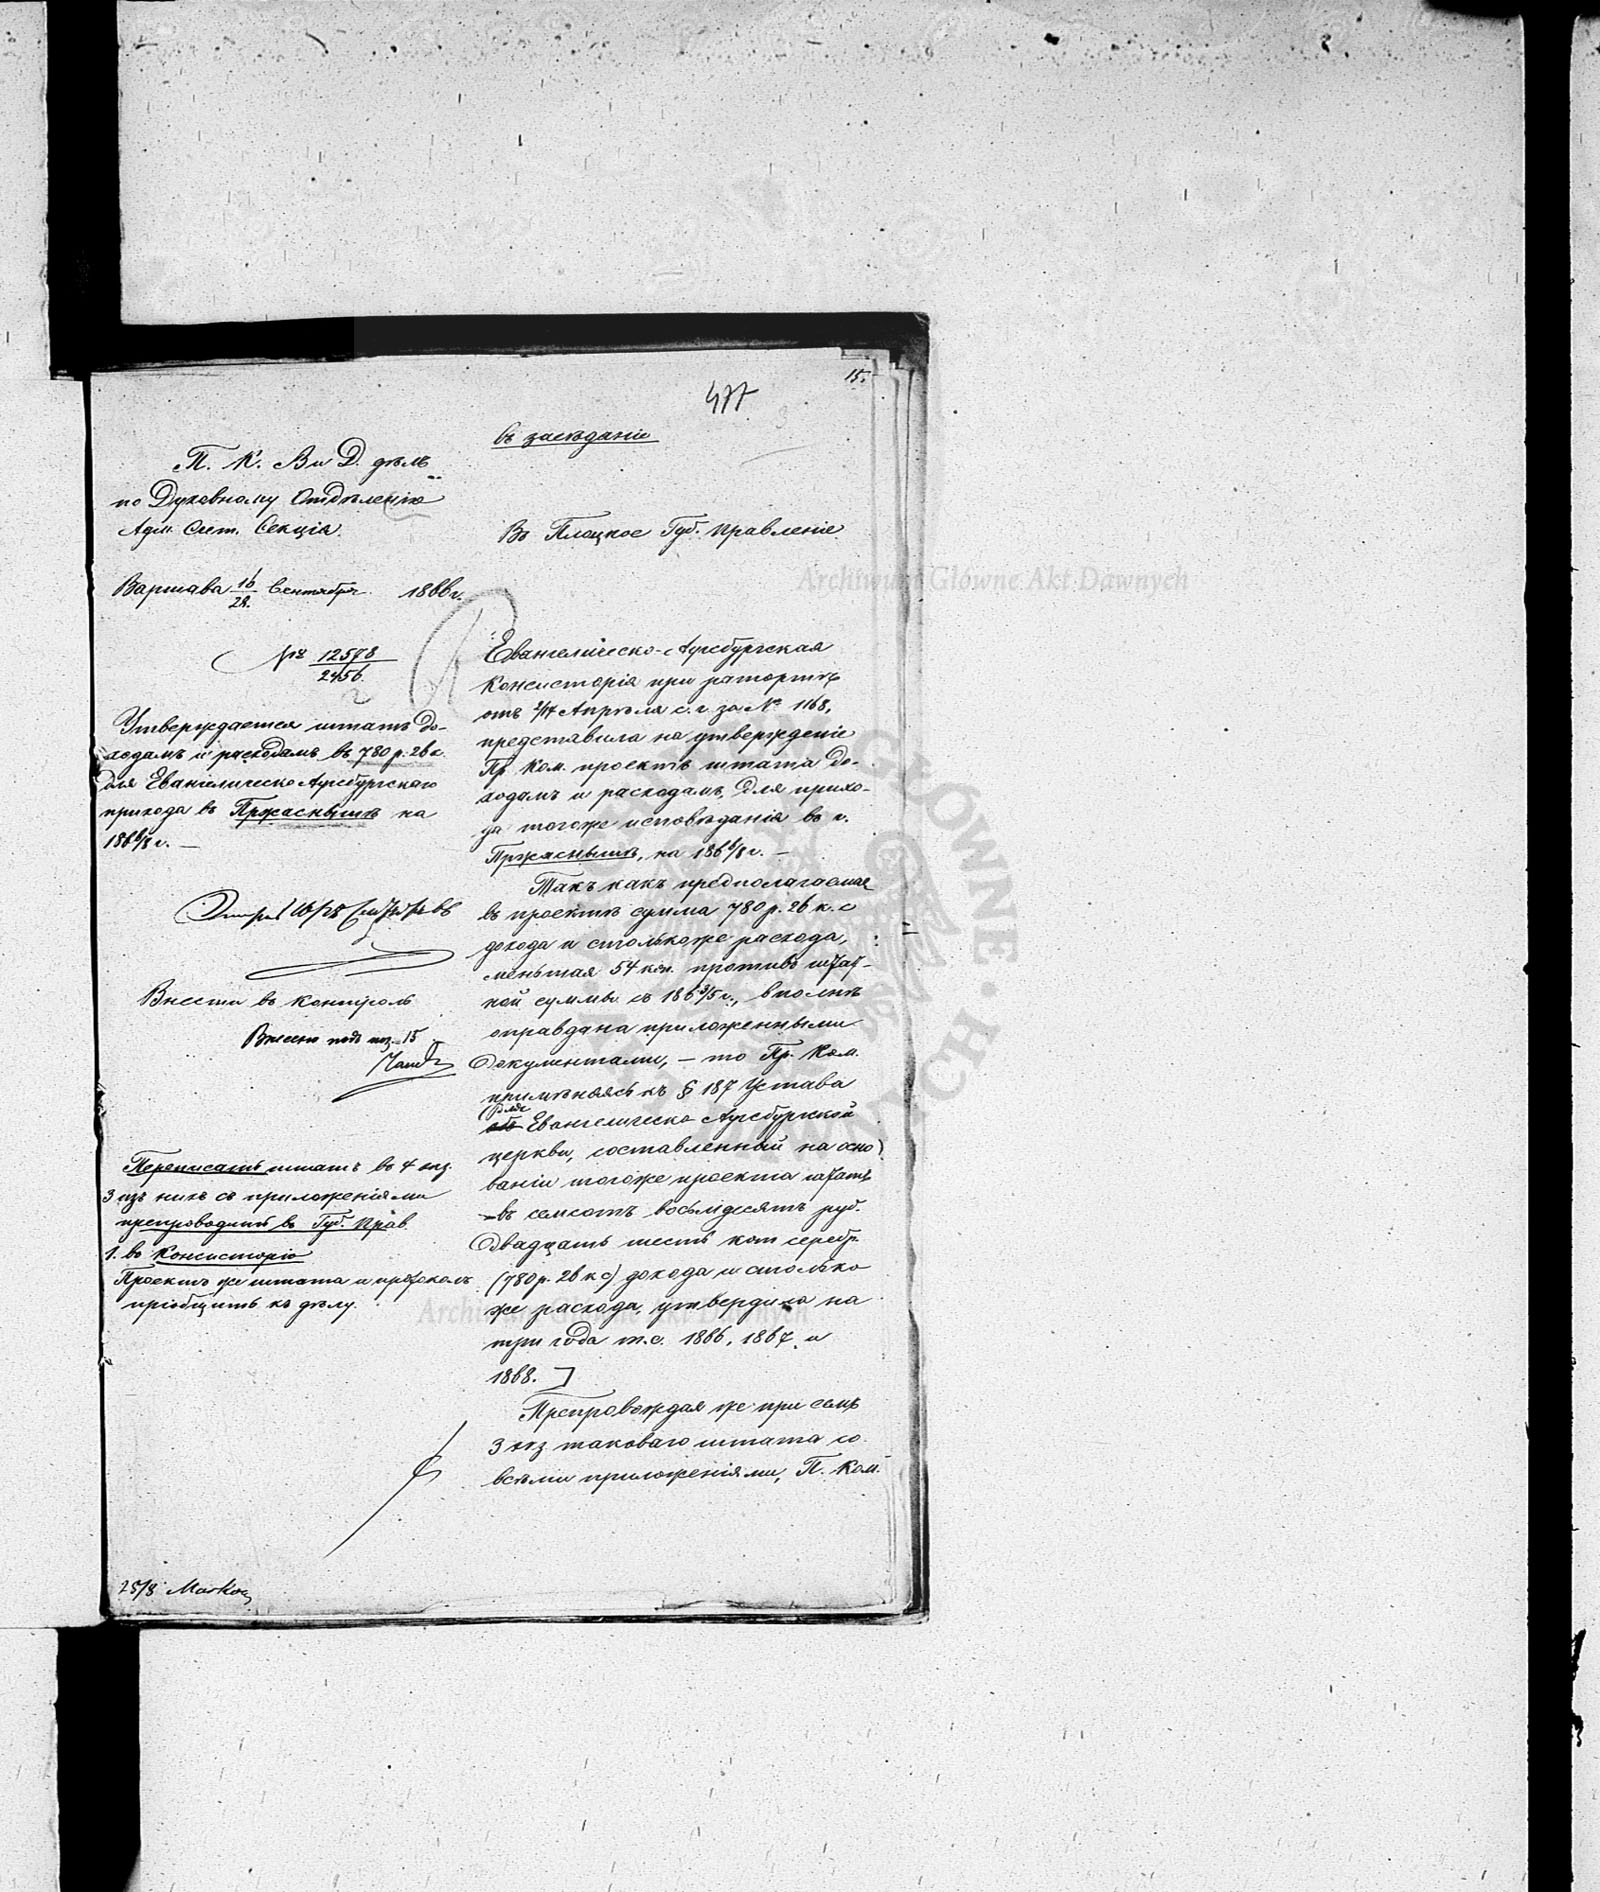 15.
477
въ засѣданіе
П. К. В и Д. дѣлъ
по Духовному Отдѣленію
Адм. Счет. Секція.
Варшава 16/28 Сентября 1866 г.
№ 12578/2456
Утверждается штатъ до-
ходамъ и расходамъ въ 780 р. 26 к.
для Евангелическо Аугсбургскаго
прихода въ Пржаснышѣ на
1866/8 г. —
16/28 66
Внести въ контроль
Внесено подъ поз. 15
Переписать штатъ въ 4 экз.
3 изъ нихъ съ приложеніями
препроводить въ Губ. Прав.
1. въ Консисторію
Проектъ же штата и протоколъ
пріобщить къ дѣлу.
25/8 Markow
Въ Плоцкое Губ. Правленіе
Евангелическо-Аугсбургская
Консисторія при рапортѣ
отъ 2/14 Апрѣля с. г. за № 1168,
представила на утвержденіе
Пр. Ком. проектъ штата до-
ходамъ и расходамъ, для прихо-
да тогоже исповѣданія въ г.
Пржаснышѣ, на 1866/8 г. —
Такъ какъ предполагаемая
въ проектѣ сумма 780 р. 26 к. с
дохода и столькоже расхода,
меньшая 54 коп. противъ штат-
ной суммы съ 1863/5 г., вполнѣ
оправдана приложенными
документами, — то Пр. Ком.
примѣняясь къ § 187 Устава
для
Евангелическо Аугсбургской
церкви, составленный на осно-
ваніи тогоже проекта штатъ
въ семсотъ восьмдесятъ руб.
двадцать шесть коп серебр.
(780 р. 26 к с) дохода и столько
же расхода, утвердила на
три года т. е. 1866, 1867 и
1868. ]
Препровождая же при семъ
3 экз таковаго штата со
всѣми приложеніями, П. Ком.
Archiwum Główne Akt Dawnych
Archiwum Główne Akt Dawnych